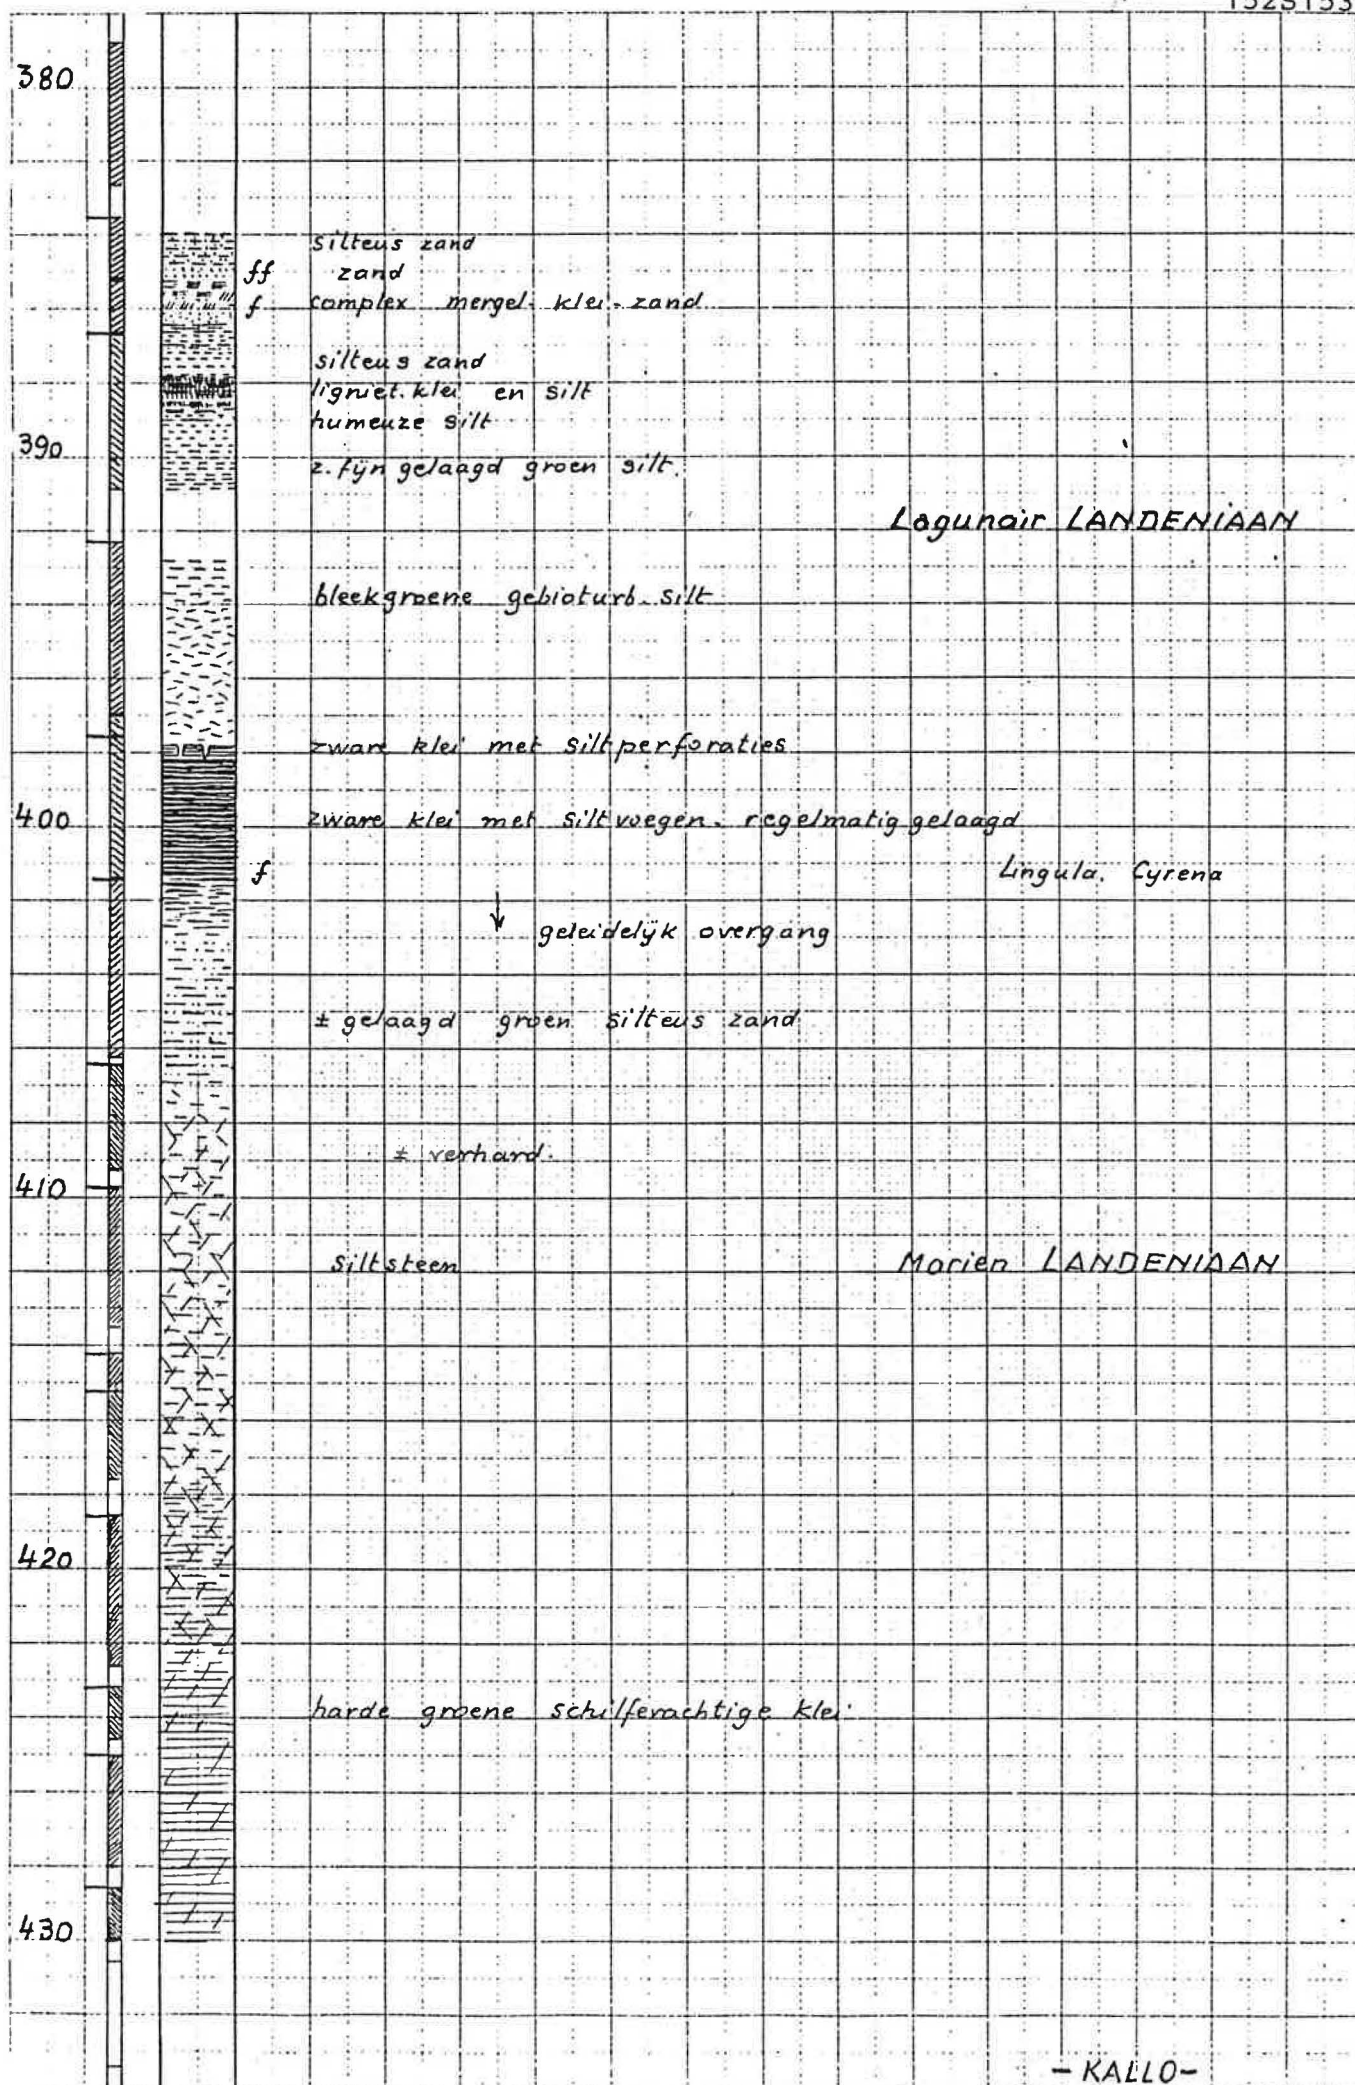 380
silteus zand
ff zand
f complex mergel-klei-zand
silteus zand
ligniet.klei en silt
humeuze silt
390
z.fijn gelaagd groen silt.
Lagunair LANDENIAAN
bleekgroene gebioturb. silt
zware klei met siltperforaties
400 zware klei met siltvoegen. regelmatig gelaagd
f Lingula. Cyrena
geleidelijk overgang
± gelaagd groen silteus zand
± verhard.
410
siltsteen Marien LANDENIAAN
420
harde groene schilferachtige klei
430
- KALLO -